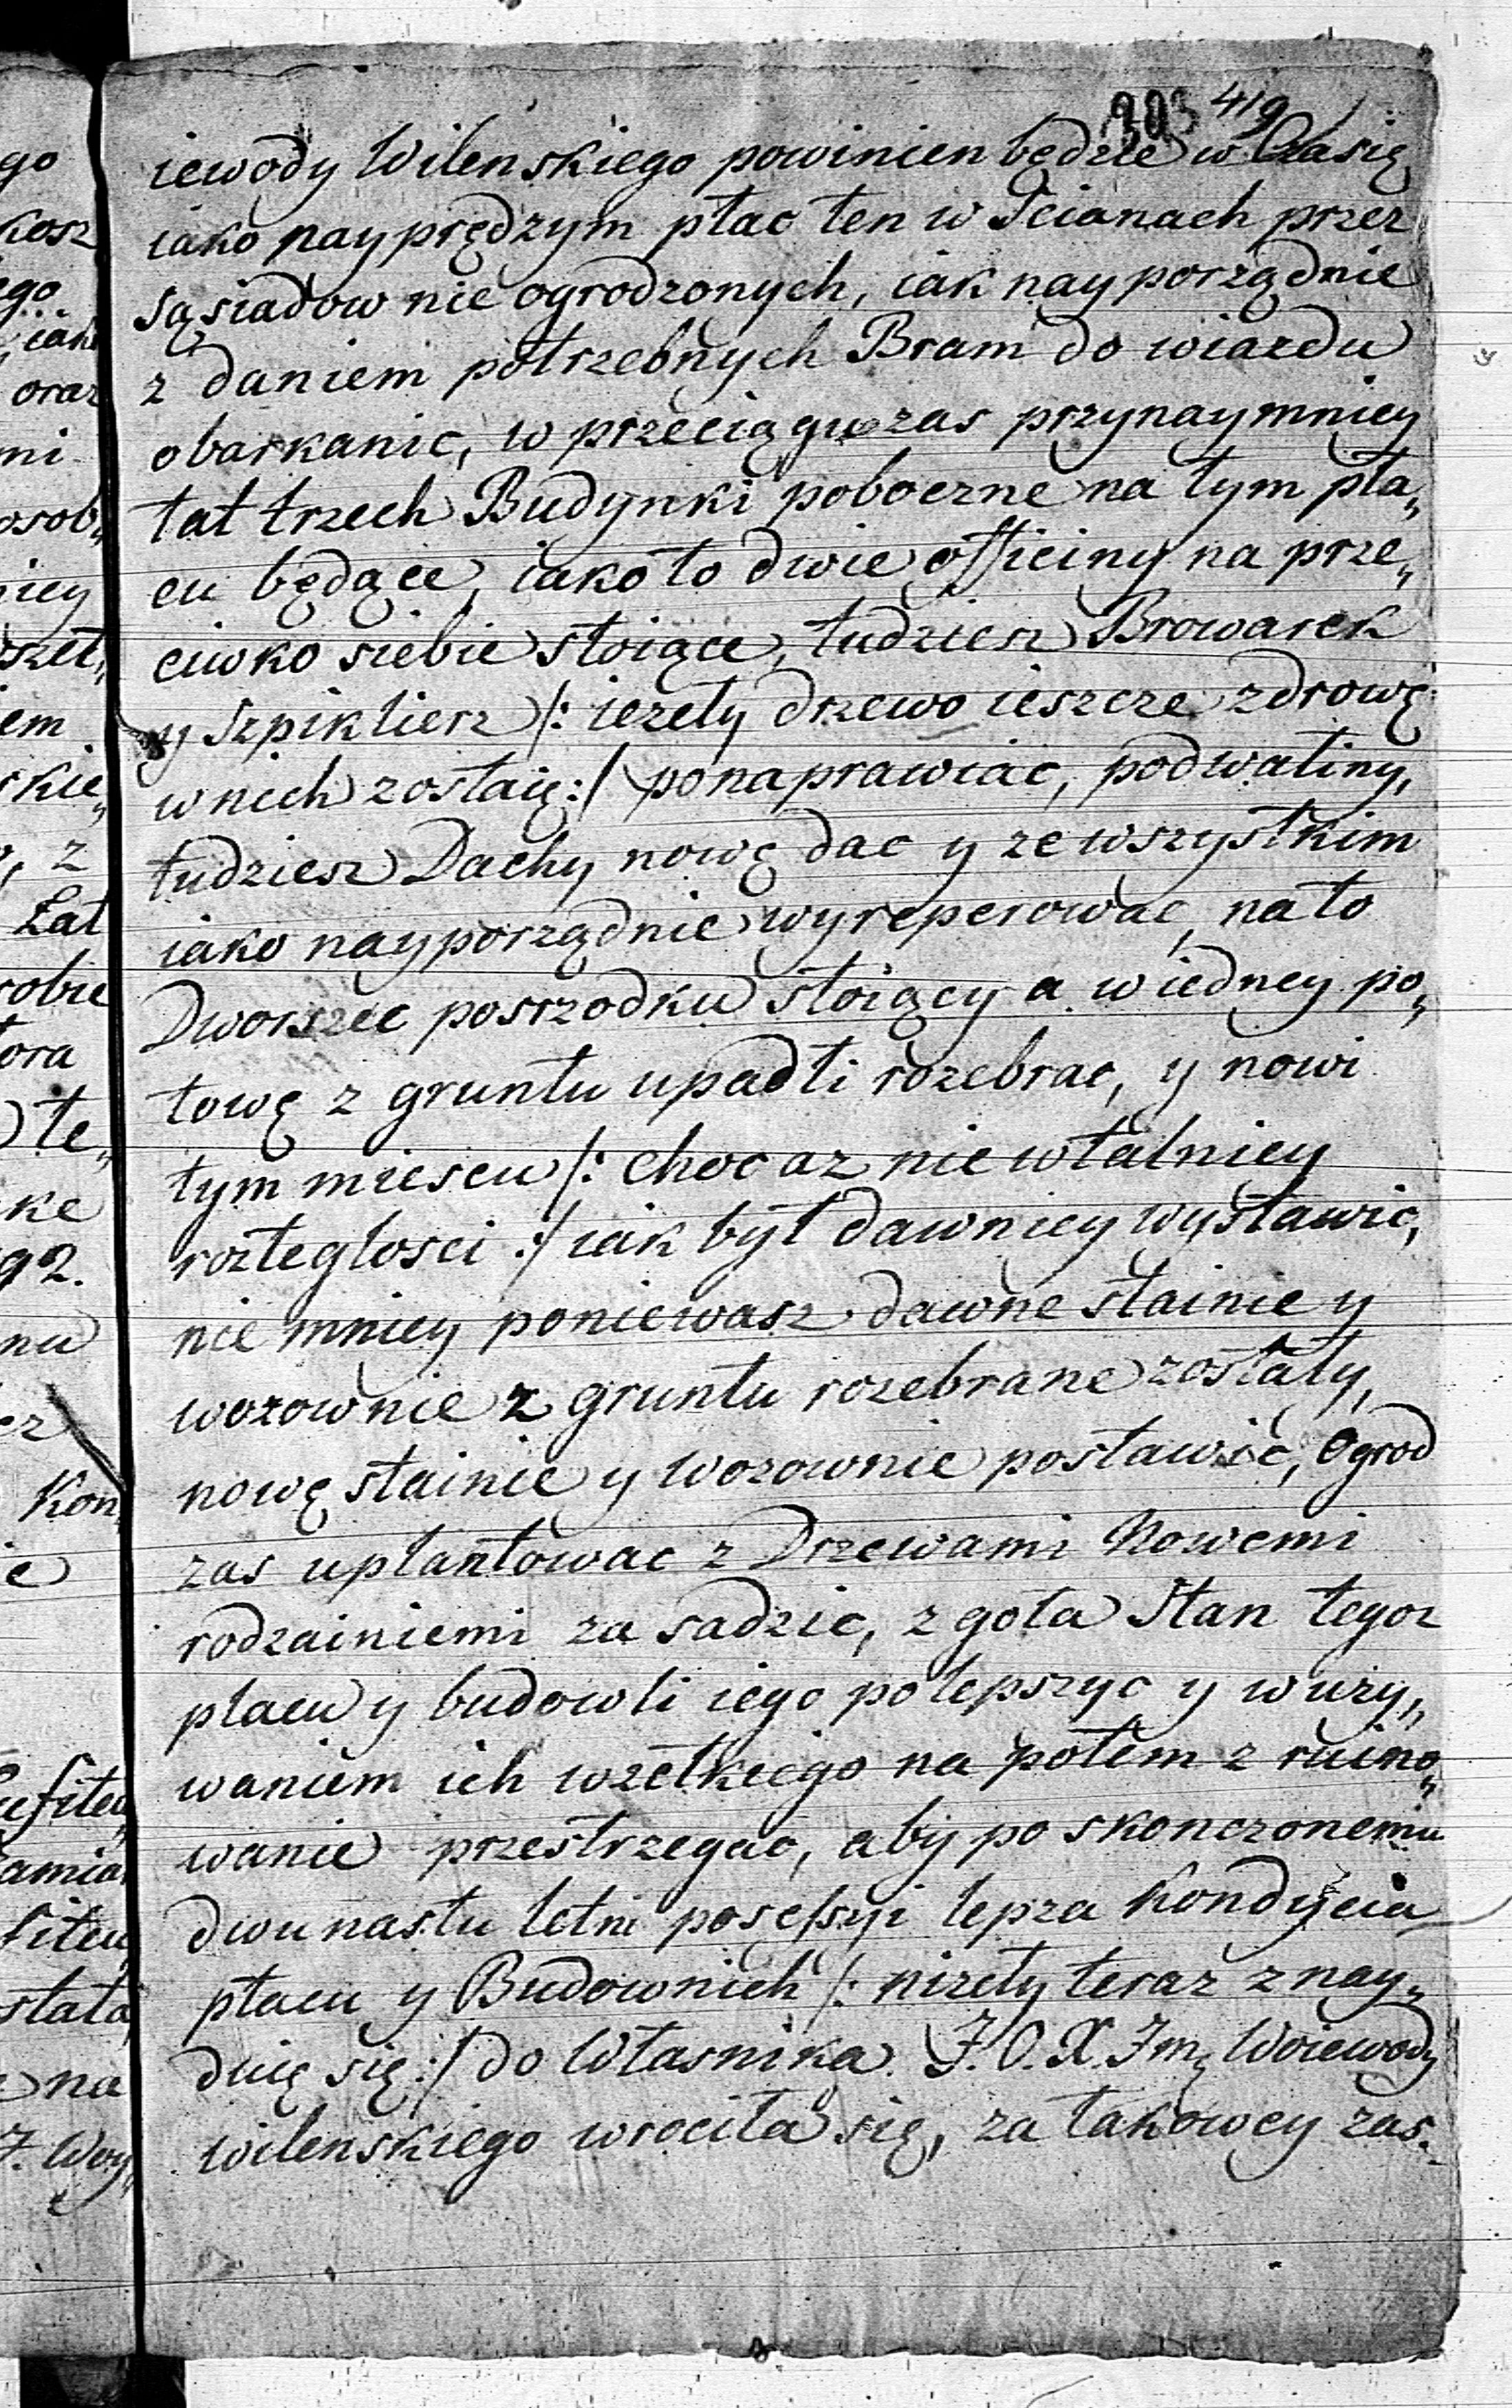 303 419
iewody Wilenskiego powinien będzie w Czasię
iako nayprędzym płac ten w Scianach przez
Sąsiadow nie ogrodzonych, iak nayporządnie
z daniem potrzebnych Bram do wiazdu
obarkanic, w przeciągu zas przynaymniey
łat trzech Budynki poboczne na tym pła„
cu będące, iako to dwie officiny na prze„
ciwko siebie stoiące, tudziesz Browarek
y Szpikliesz /: iezeły drzewo ieszcze zdrowę
w nich zostaię :/ ponaprawiac, podwaliny,
tudziesz Dachy nowę dac y ze wszystkim
iako nayporządnie wyreperowac, na to
Dworzec posrzodku stoiący a w iedney po„
łowę z gruntu upadłi rozebrac, y nowi
tym miescu /: chocaz nie w tałniey
rozłegłosci :/ iak był dawniey wystawic,
nie mniey poniewasz dawne stainie y
wozownie z gruntu rozebrane zostały,
nowę stainie y wozownie postawić, Ogrod
zas uplantowac z Drzewami Nowemi
rodzainiemi za sadzic, zgoła Stan tegoz
płacu y budowli iego polepszyc y w uzy„
waniem ich wzełkiego na potem zruino„
wanie przestrzegac, aby po skonczonemu
dwunastu letni posessyi lepza Kondycia
płacu y Budownich /: nizeły teraz znay„
duię się :/ do Własnika J. O. X. Jmę Woiewody
wilenskiego wrociła się, za takowey zas.
go
kosz
ego
iak
oraz
mi
osob„
niey
em
skie„
z
Łat
robie
tora
te„
ke
92.
nu
ez
Kon„
ie
fiteu
amia
fiteu
stała
na
J. Woy„